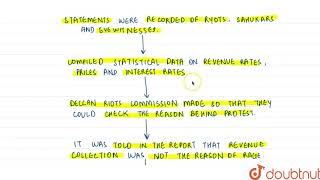 STATEMENTS WERE RECORDED OF RYOTS, SAHUKARS
AND EYEWITNESSES.
COMPILED STATISTICAL DATA ON REVENUE RATES,
PRICES AND INTEREST RATES
DECCAN RIOTS COMMISSION MADE SO THAT THEY
COULD CHECK THE REASON BEHIND PROTEST.
IT WAS TOLD IN THE REPORT THAT REVENUE
COLLECTION WAS NOT THE REASON OF RAGE
doubtnut